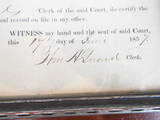 Clerk of the said Court, do certify the
and record on file in my office.
WITNESS my hand and the seal of said Court,
this day of June 185
Clerk.